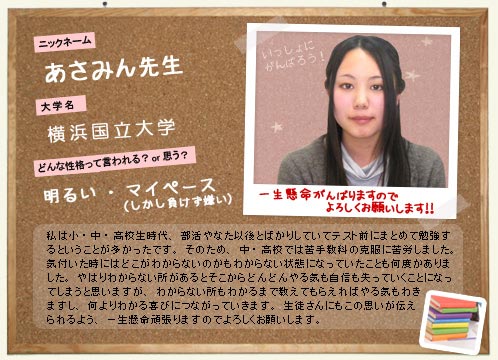 ニックネーム
あさみん先生
大学名
横浜国立大学
どんな性格って言われる? or 思う?
明るい ・ マイペース
(しかし負けず嫌い)
いっしょに
がんばろう!
一生懸命がんばりますので
よろしくお願いします!!
私は小・中・高校生時代、部活やなた以後とばかりしていてテスト前にまとめて勉強す
るということが多かったです。そのため、中・高校では苦手教科の克服に苦労しました。
気付いた時にはどこがわからないのかもわからない状態になっていたことも何度かありま
した。やはりわからない所があるとそこからどんどんやる気も自信も失っていくことになっ
てしまうと思いますが、わからない所もわかるまで教えてもらえればやる気もわき
ますし、何よりわかる喜びにつながっていきます。生徒さんにもこの思いが伝え
られるよう、一生懸命頑張りますのでよろしくお願いします。